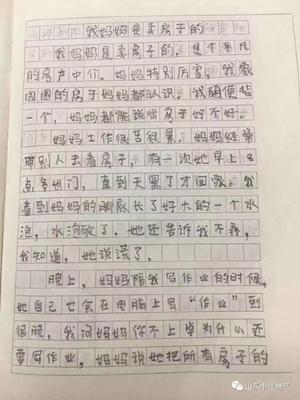 我妈妈是卖房子的
我妈妈是卖房子的，是个平凡
的房产中介。妈妈特别厉害，我家
周围的房子妈妈都认识。我随便指
一个，妈妈都能说出房子好不好。
妈妈工作很苦很累。妈妈经常
带别人去看房子，有一次她早上8
点多出门，直到天黑了才回家。我
看到妈妈的脚底长了好大的一个水
泡，水泡破了。她还告诉我不疼，
我知道，她说谎了。
晚上，妈妈陪我写作业的时候，
她自己也会在电脑上写“作业”到
很晚。我问妈妈你不上学为什么还
要写作业，妈妈说她把所有房子的
山东中住地产